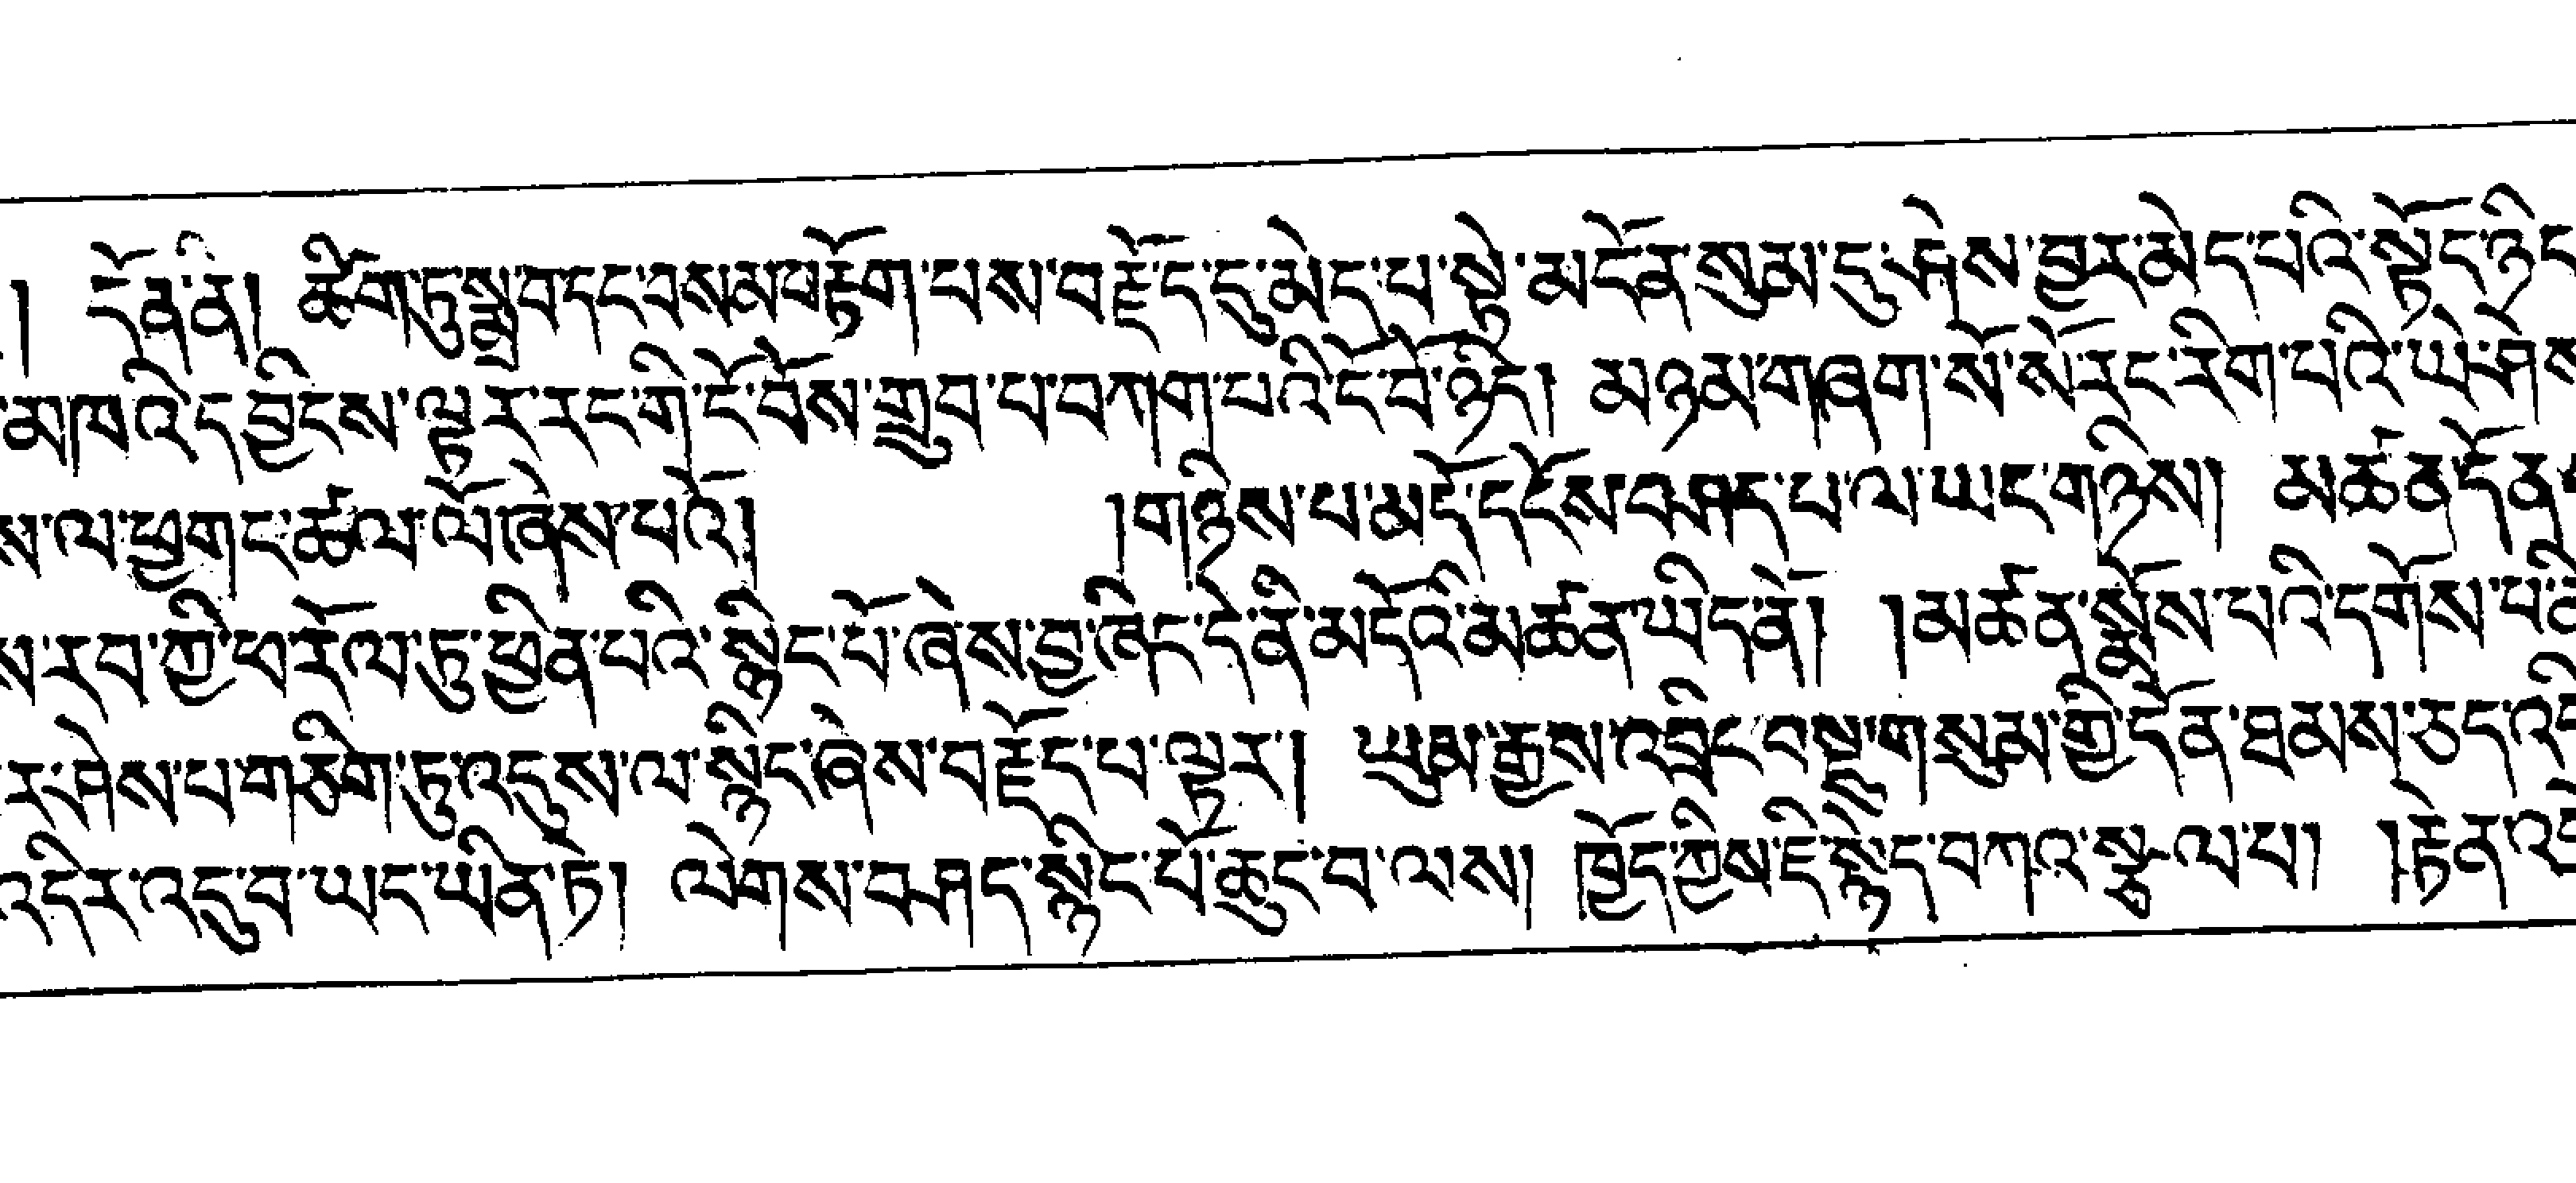 ། དོན་ནི། ཚིག་ཏུ་སྨྲ་བ་དང་བསམ་བརྟོག་པས་བརྗོད་དུ་མེད་པ་སྟེ་མངོན་སུམ་དུ་ཤེས་བྱར་མེད་པའི་སྟོང་ཉིད
མཁའི་དབྱིངས་ལྟར་རང་གི་ངོ་བོས་གྲུབ་པ་བཀག་པའི་ངོ་བོ་ཉིད། མཉམ་གཞག་སོ་སོ་རང་རིག་པའི་ཡེ་ཤེས
ས་ལ་ཕྱག་ང་ཚལ་ལོ་ཞེས་པའོ། །གཉིས་པ་མདོ་དངོས་བཤད་པ་ལ་ཡང་གཉིས། མཚན་དོན་
རབ་ཀྱི་ཕ་རོལ་ཏུ་ཕྱིན་པའི་སྙིང་པོ་ཞེས་བྱ་ཞིང་དེ་ནི་མདོའི་མཚན་ཡིད་ནོ། །མཚན་སྨོས་པའི་དགོས་པ་ནི
ར་ཤེས་པ་གཅིག་ཏུ་འདུས་ལ་སྙིང་ཞེས་བརྗོད་པ་ལྟར། ཡུམ་རྒྱས་འབྲིང་བསྡུ་གསུམ་གྱི་དོན་ཐམས་ཅད་འདི
འདིར་འདུ་བ་ཡང་ཡིན་ཏེ། ལེགས་བཤད་སྙིང་པོ་ཆུང་བ་ལས། ཁྱོད་ཀྱིས་ཇི་སྙེད་བཀའ་སྩལ་པ། །རྟེན་འ